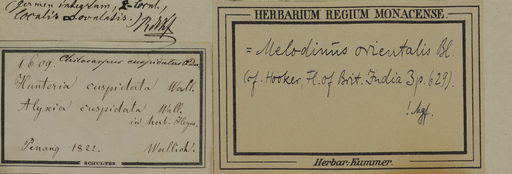 germen integrum, 2-locul,
loculis 2ovulatis.
1609. Chilocarpus cuspidatus
Hunteria cuspidata Wall.
Alyxia cuspidata Wall.
in herb. Heyne.
Penang 1822. Wallich!
SCHULTES
HERBARIUM REGIUM MONACENSE
= Melodinus orientalis Bl.
(cf. Hooker, Fl. of Brit. India 3 p. 629).
! Mgf.
Herbar. Kummer.